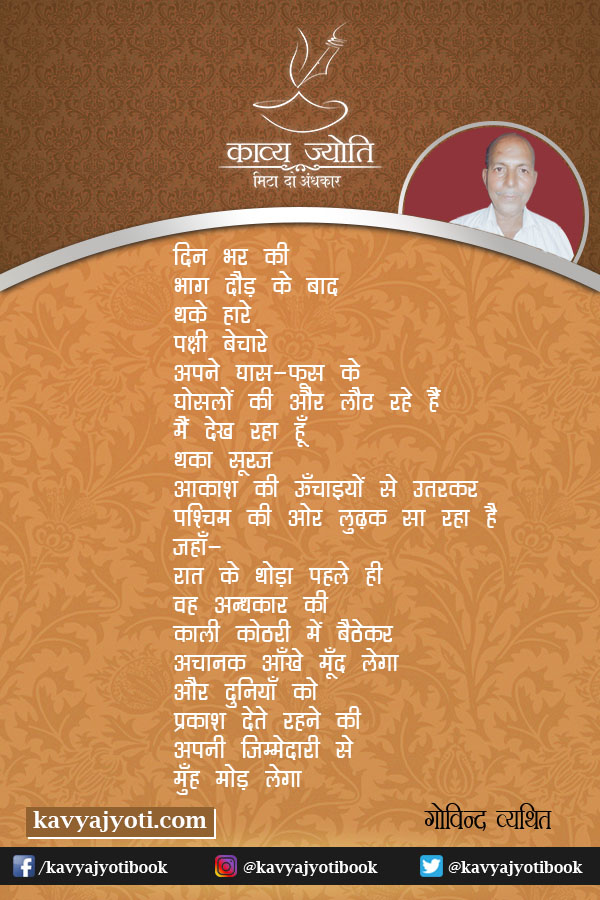 काव्य ज्योति
मिटा दो अंधकार
दिन भर की
भाग दौड़ के बाद
थके हारे
पक्षी बेचारे
अपने घास-फूस के
घोसलों की और लौट रहे हैं
मैं देख रहा हूँ
थका सूरज
आकाश की ऊँचाइयों से उतरकर
पश्चिम की ओर लुढ़क सा रहा है
जहाँ-
रात के थोड़ा पहले ही
वह अन्धकार की
काली कोठरी में बैठेकर
अचानक आँखे मूँद लेगा
और दुनियाँ को
प्रकाश देते रहने की
अपनी जिम्मेदारी से
मुँह मोड़ लेगा
kavyajyoti.com
गोविन्द व्यथित
/kavyajyotibook
@kavyajyotibook
@kavyajyotibook